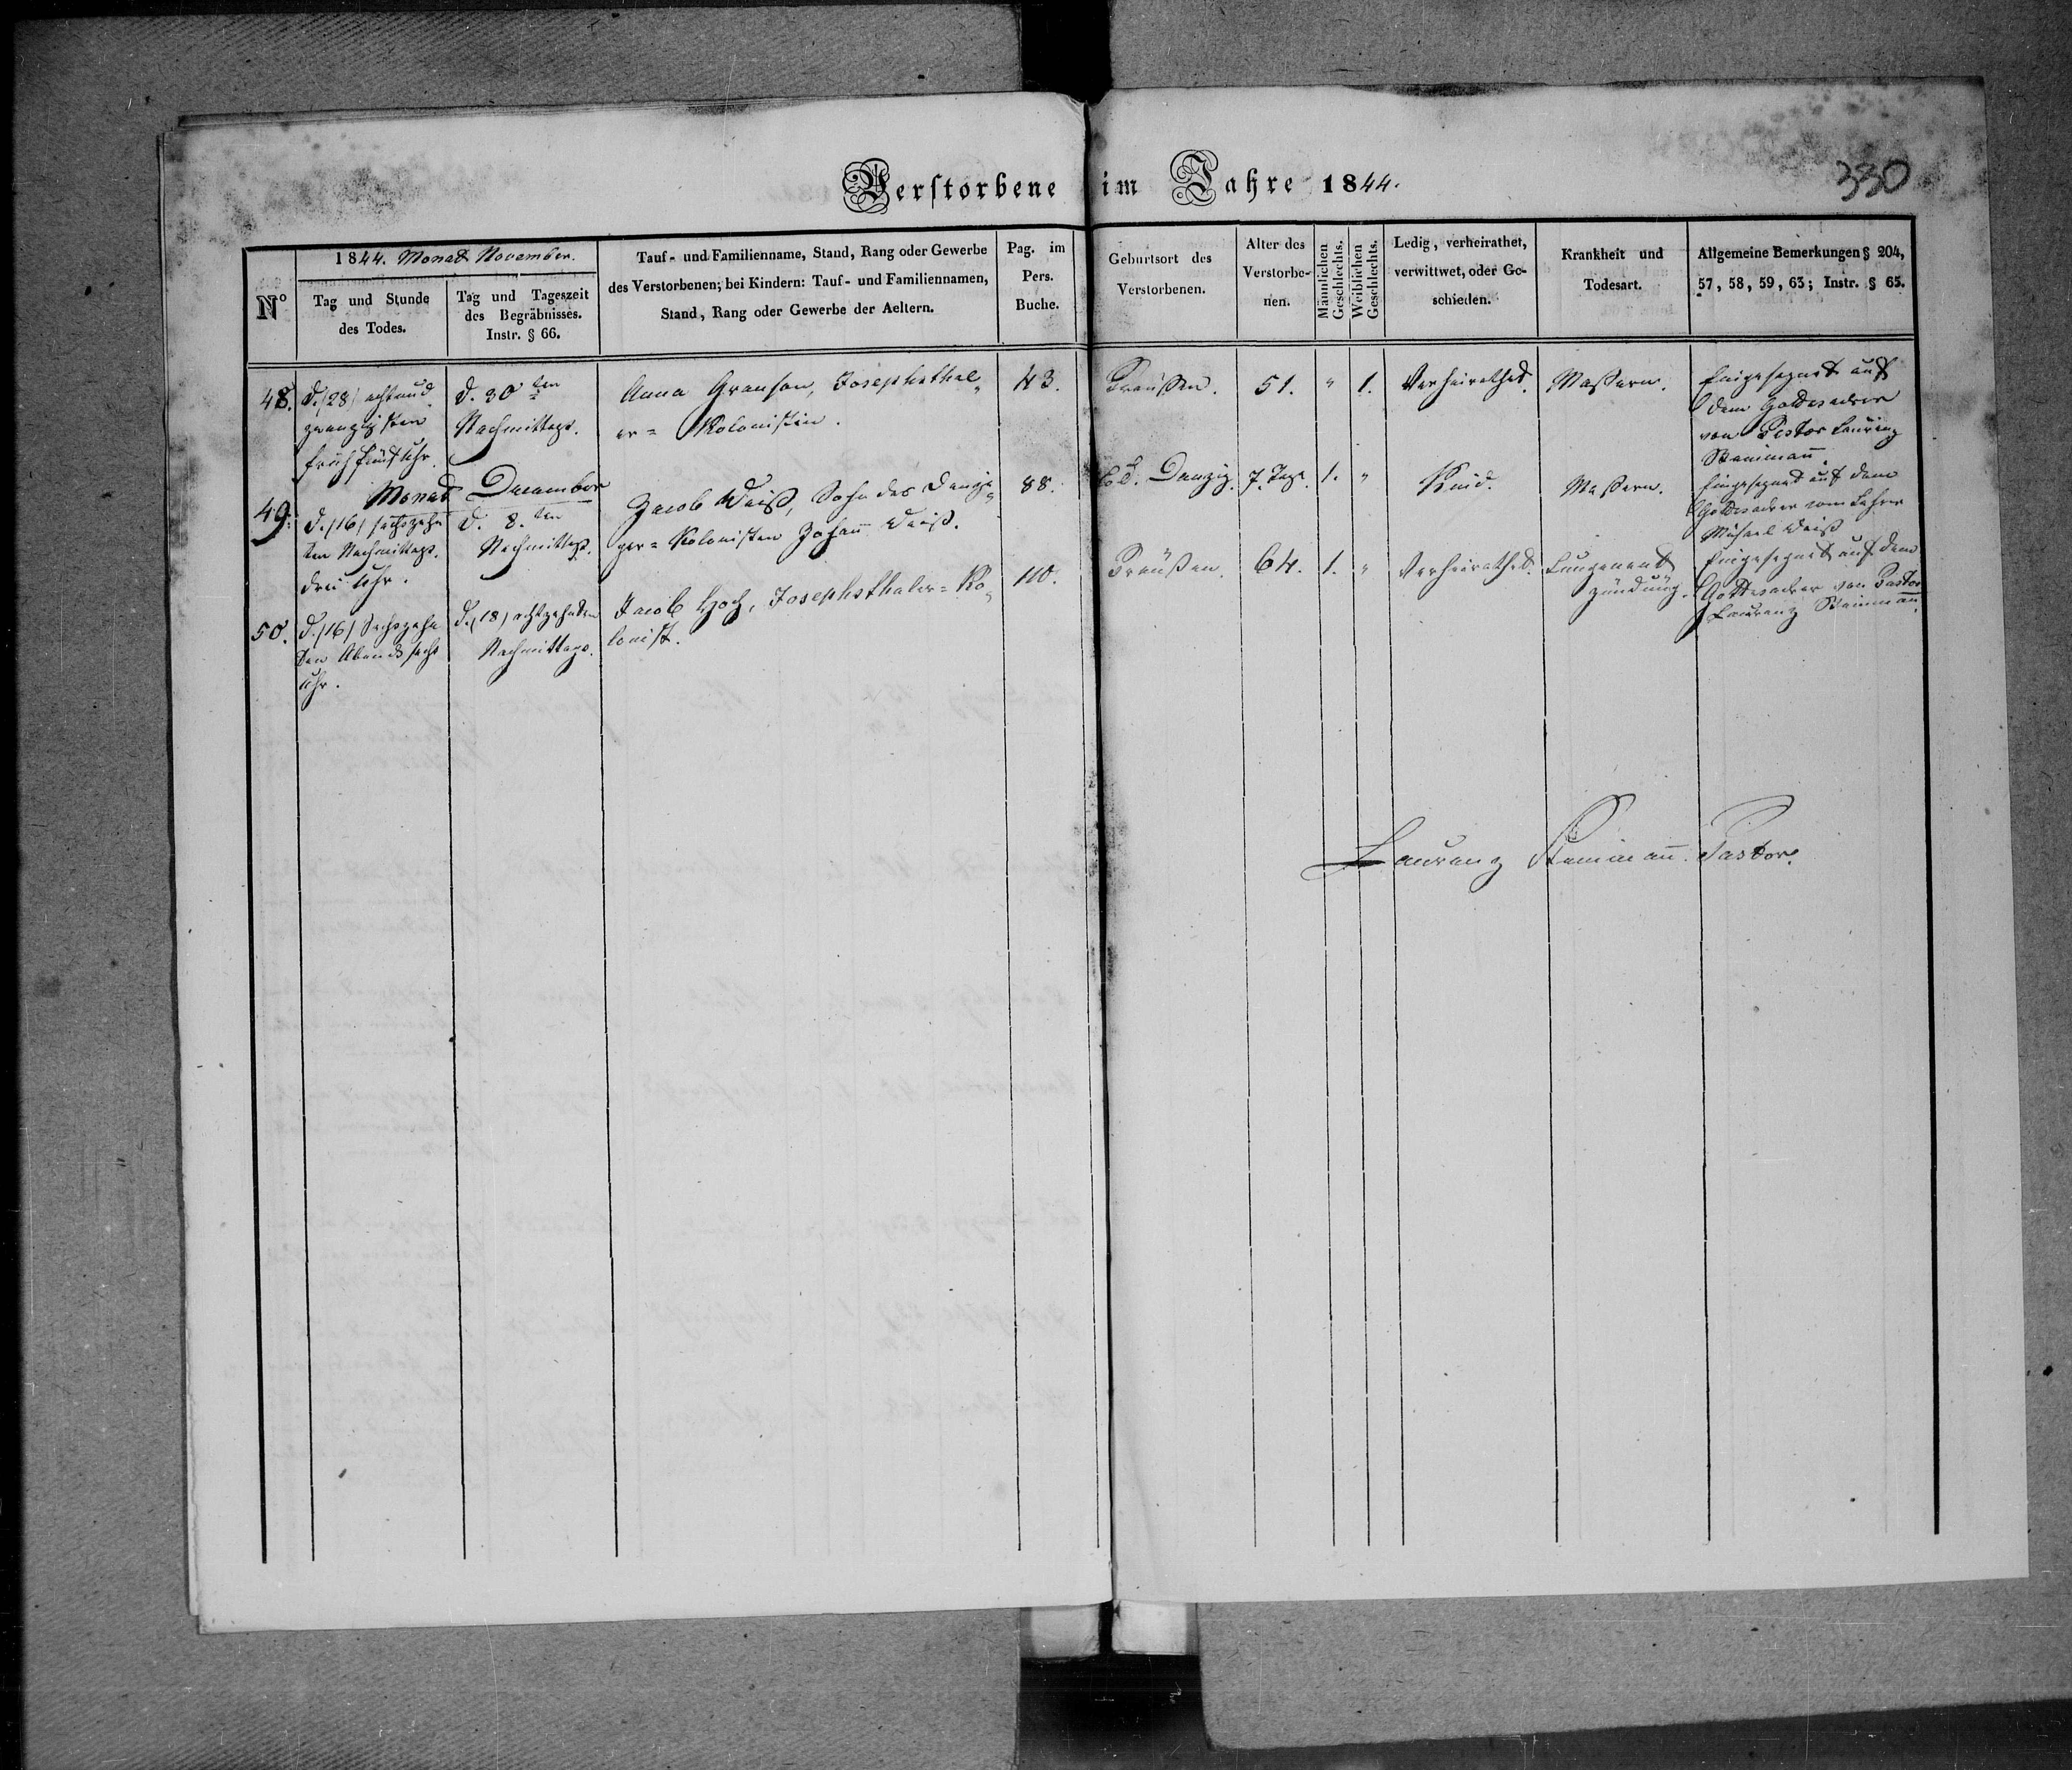 Verstorbene im Jahre 1844.
330
No
1844. Monat November.
Tag und Stunde
des Todes.
Tag und Tageszeit
des Begräbnisses.
Instr. § 66.
Tauf- und Familienname, Stand, Rang oder Gewerbe
des Verstorbenen; bei Kindern: Tauf- und Familiennamen,
Stand, Rang oder Gewerbe der Aeltern.
Pag. im
Pers.
Buche.
Geburtsort des
Verstorbenen.
Alter des
Verstorbe-
nen.
Männlichen
Geschlechts.
Weiblichen
Geschlechts.
Ledig, verheirathet,
verwittwet, oder Ge-
schieden.
Krankheit und
Todesart.
Allgemeine Bemerkungen § 204,
57, 58, 59, 63; Instr. § 65.
48.
d. (28) achtund
zwanzigsten
früh fünf Uhr.
d. 30ten
Nachmittags.
Anna Iosephsthal-
er-Kolonistin.
43.
Preußen.
51.
"
1.
Verheirathet.
Masern.
Eingesegnet auf
dem Gottesacker
von Pastor Laurenz
Steinmann.
Monat December
49.
d. (16) sechszehn
ten Nachmittags.
drei Uhr.
d. 8.ten
Nachmittags.
Jacob Weiß, Sohn des Danzi-
ger-Kolonisten Johann Weiß.
88.
Col. Danzig.
7. Tage.
1.
"
Kind.
Masern.
Eingesegnet auf dem
Gottesacker vom Lehrer
Michael Weiß
50.
d. (16) Sechszehn
ten Abends sechs
Uhr.
d. (18) achtzehnten
Nachmittags.
Jacob Hoch, Iosephsthaler-Ko-
lonist.
110.
Preußen.
64.
1.
"
Verheirathet.
Lungenent
zündung.
Eingesegnet auf dem
Gottesacker von Pastor
Laurenz Steinmann.
Laurenz Steinmann. Pastor.